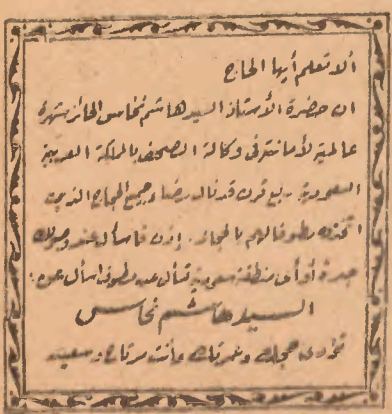 ألا تعلم أيها الحاج
ان حضرة الأستاذ السيد هاشم نحاس الحائز شهرة
عالمية لأمانته في وكالة الصحف بالمملكة العربية
السعودية ربع قرن قد نال رضا جميع الحجاج الذين
اتخذوه مطوفا لهم بالحجاز. إذن فاسأل عند وصولك
جدة أو أى منطقة سعودية تسأل عن مطوف اسأل عن:
السيد هاشم نحاس
تؤدى حجك وعمرتك وأنت مرتاح وسعيد